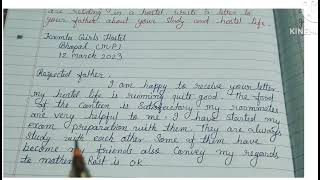 are reading in a hostel write a letter to
your father about your study and hostel life.
Kamla Girls Hostel
Bhopal (M.P)
12 march 2023
Respected father,
I am happy to receive your letter
my hostel life is running quite good. The food
of the canteen is satisfactory my roommates
are very helpful to me. I have started my
exam preparation with them. They are always
study with each other. Some of them have
become my friends also Convey my regards
to mother. Rest is OK
KINE